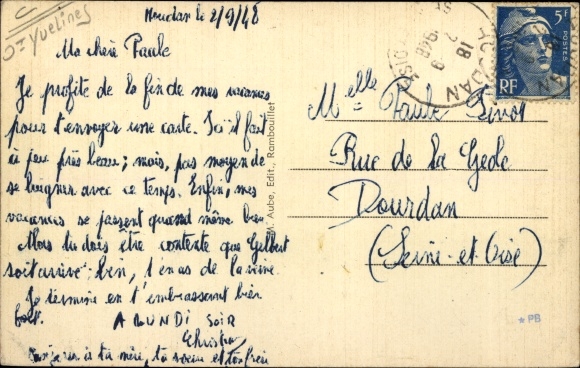 Yvelines
Houdan le 2/9/48
Ma chère Paule
Je profite de la fin de mes vacances
pour t'envoyer une carte. Ici il fait
à peu près beau; mais, pas moyen de
se baigner avec ce temps. Enfin, mes
vacances se passent quand même bien
Alors tu dois être contente que Gilbert
soit arrivé; bien, t'en as de la veine.
Je termine en t'embrassant bien
fort.
A LUNDI SOIR
Christian
à ta mère, ta soeur et ton frère
Aube, Edit., Rambouillet
Melle Paule
Rue de la
Dourdan
(Seine-et-Oise)
HOUDAN
18
2 9
1948
5F
POSTES
RF
*PB